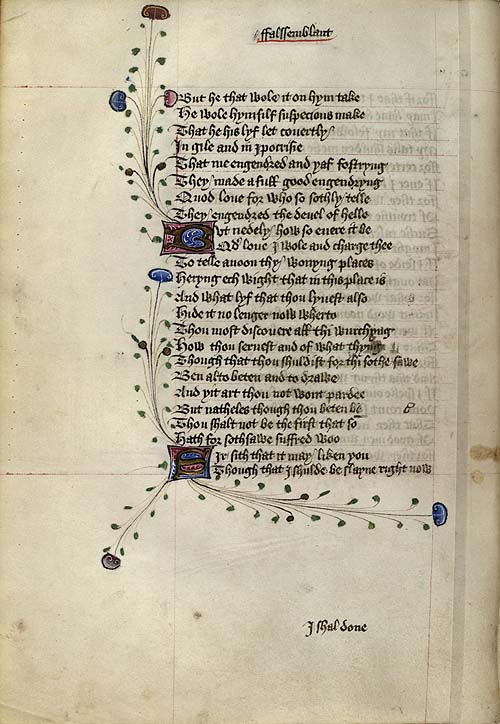 ffalssemblant
But he that wole it on hym take
He wole hymsilf suspecious make
That he his lyf let covertly
In gile and in Ipocrisie
That me engendred and yaf fostryng
They made a full good engendryng
Quod loue for who so sothly telle
They engendred the deuel of helle
But nedely how so euere it be
Qd loue I wole and charge thee
To telle anoon thy wonyng places
Heryng ech wight that in this place is
And what lyf that thou lyuest also
Hide it no lenger now wherto
Thou most discouere all thi wurchyng
How thou seruest and of what thyng
Though that thou shuldist for thi sothe sawe
Ben al to beten and to drawe
And yit art thou not wont pardee
But natheles though thou beten be
Thou shalt not be the first that so
Hath for sothsawe suffred woo
Sir sith that it may liken you
Though that I shulde be slayne right now
I shal done